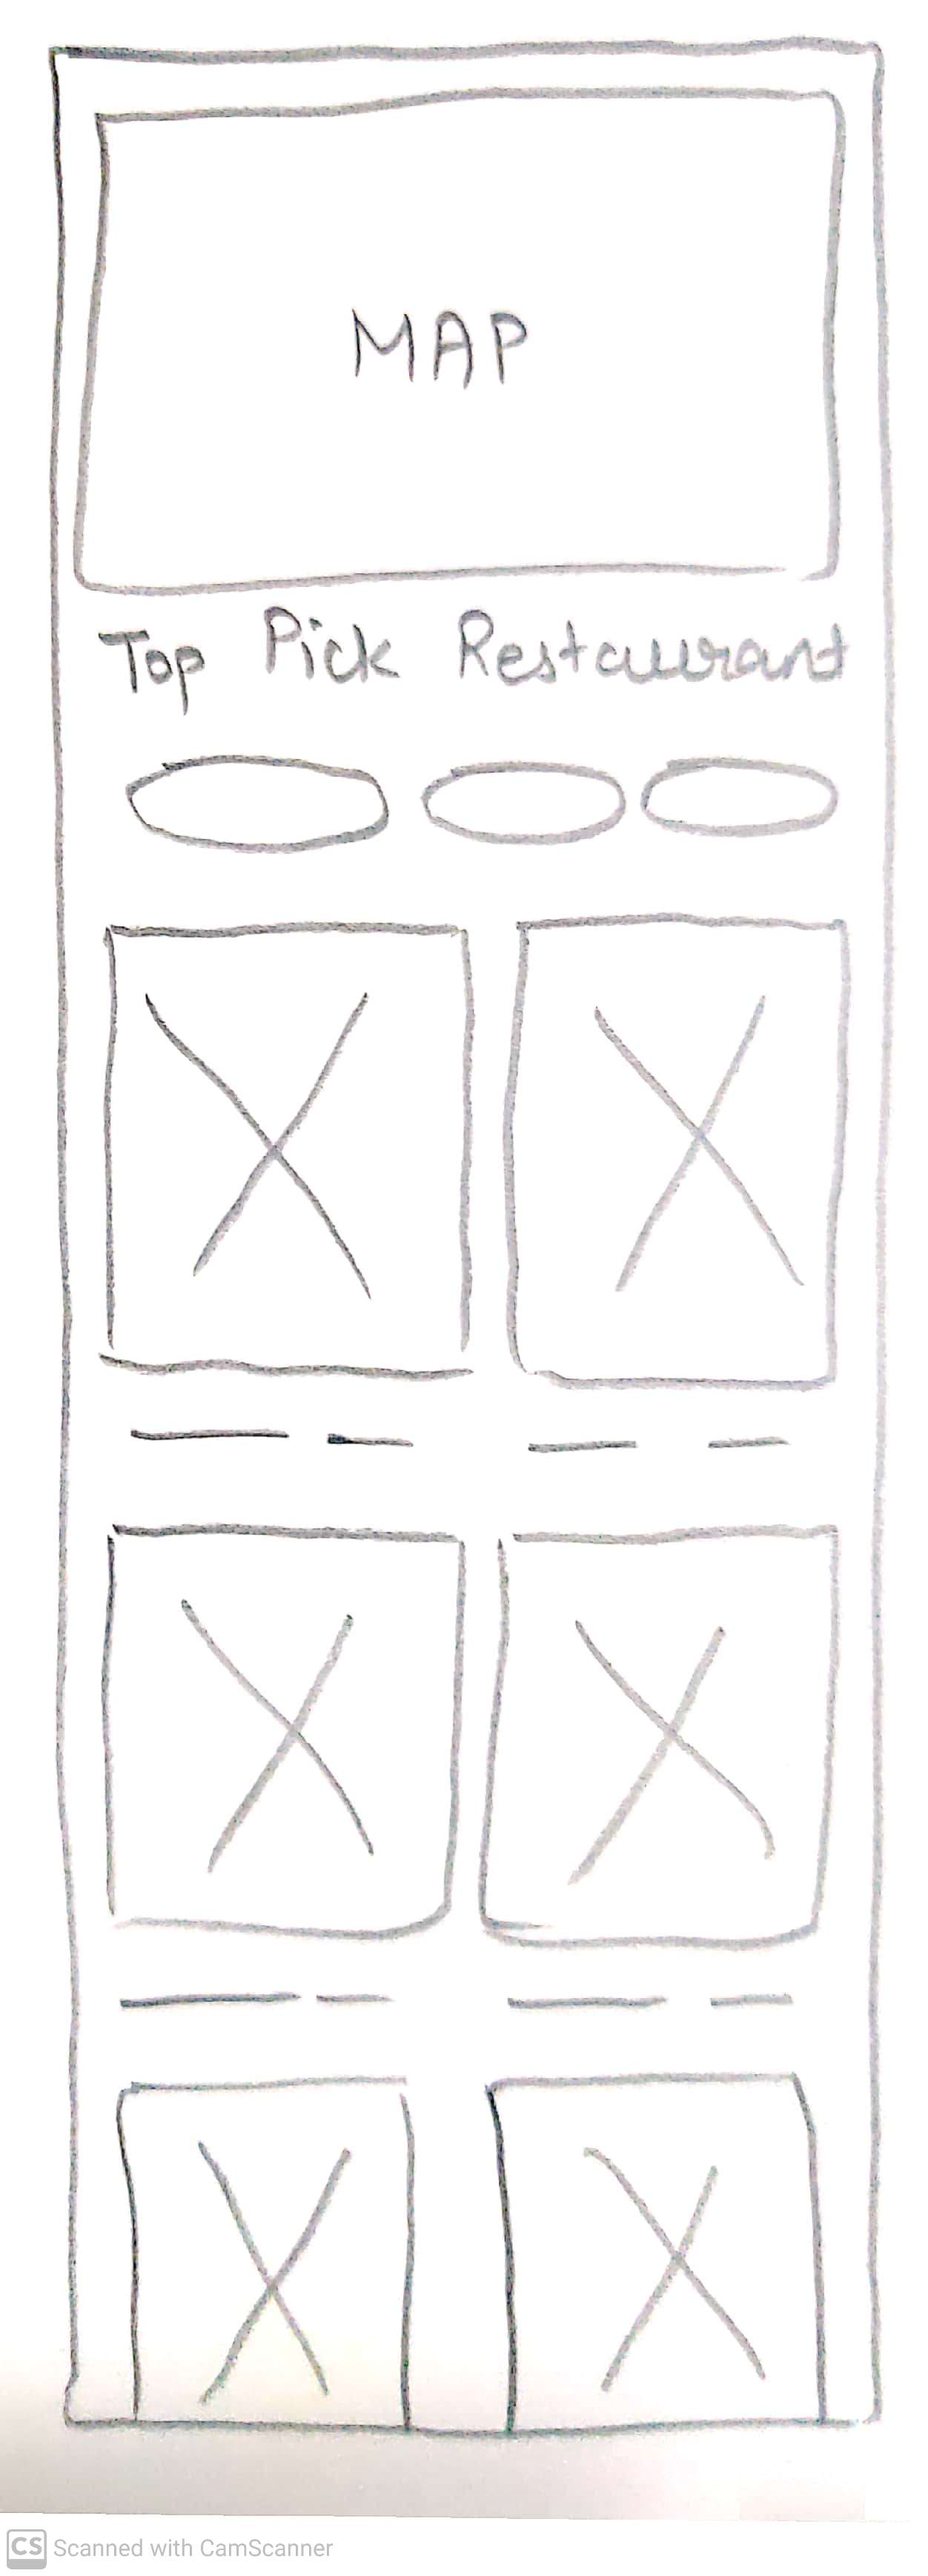 MAP
Top Pick Restaurant
CS Scanned with CamScanner